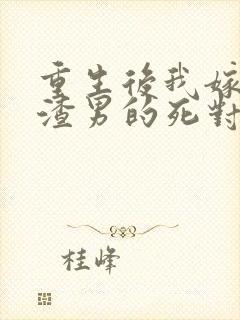 重生後我嫁
渣男的死對
桂峰